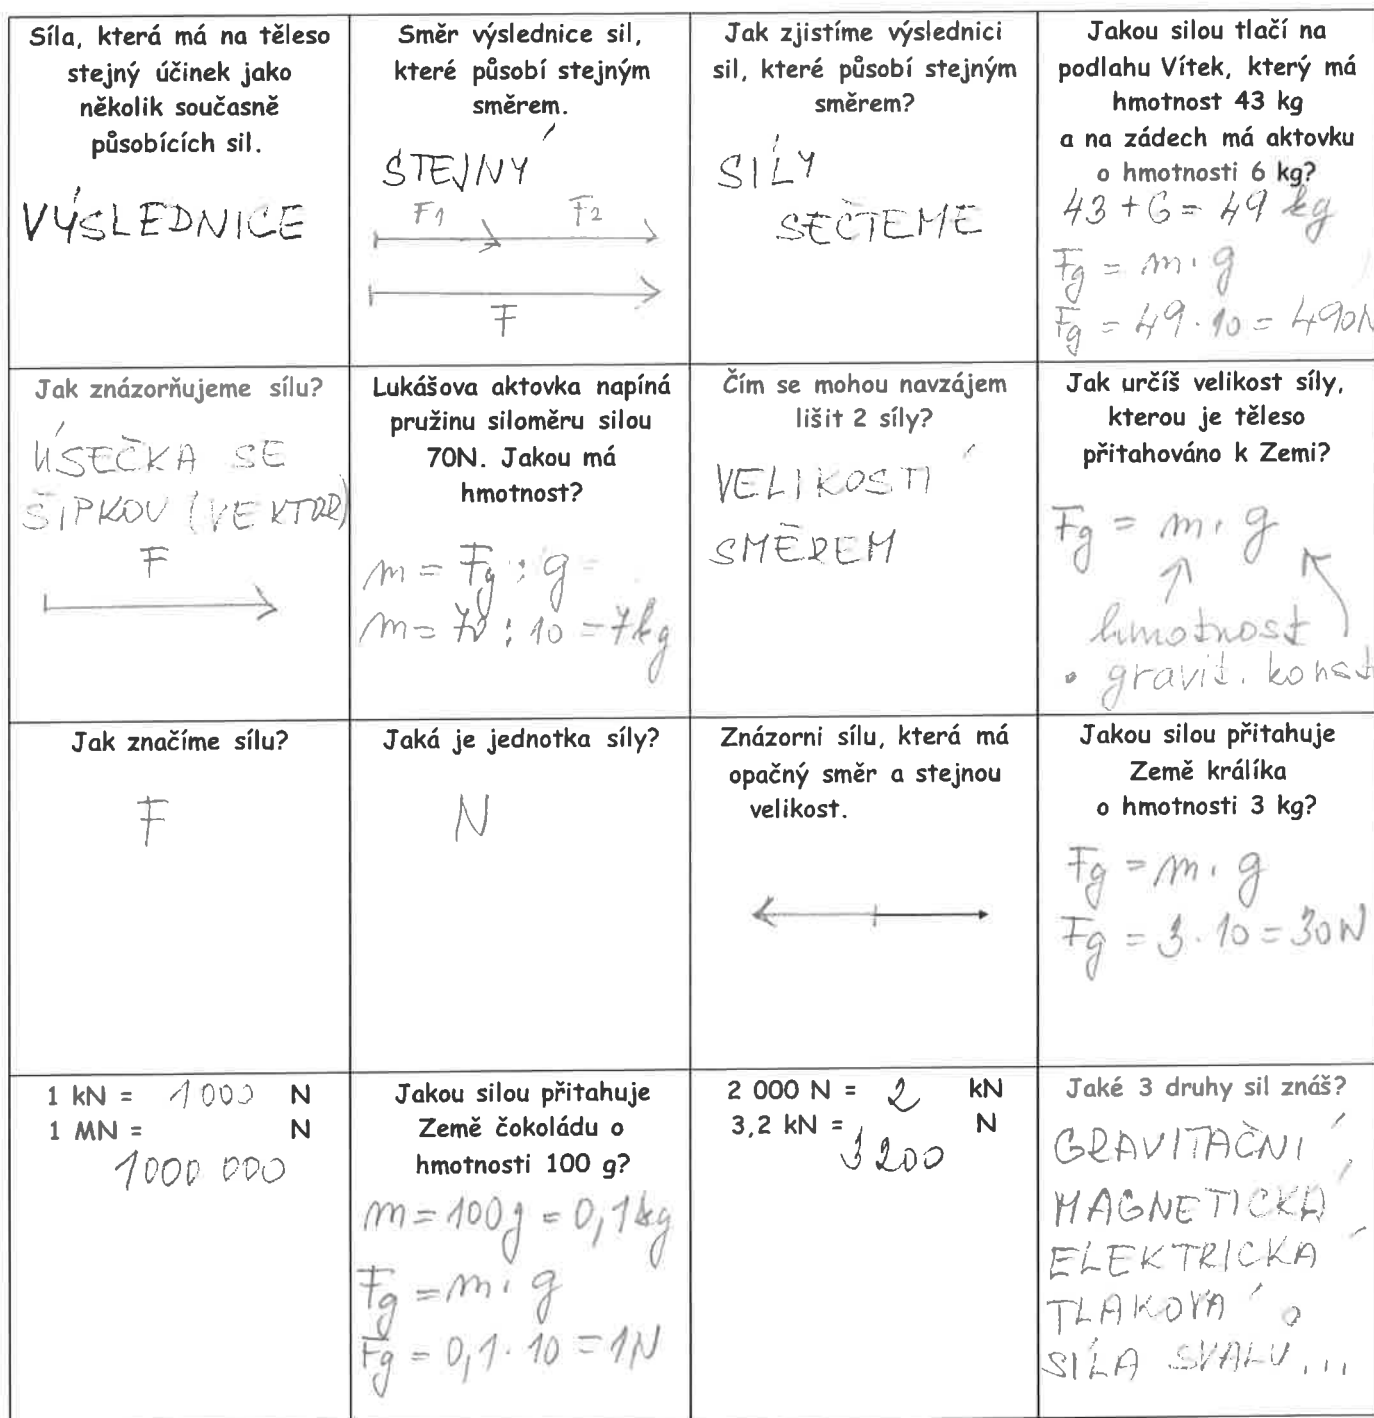 Síla, která má na těleso
stejný účinek jako
několik současně
působících sil.
VÝSLEDNICE
Směr výslednice sil,
které působí stejným
směrem.
STEJNÝ
F1 F2
F
Jak zjistíme výslednici
sil, které působí stejným
směrem?
SÍLY
SEČTEME
Jakou silou tlačí na
podlahu Vítek, který má
hmotnost 43 kg
a na zádech má aktovku
o hmotnosti 6 kg?
43 + 6 = 49 kg
Fg = m · g
Fg = 49 · 10 = 490N
Jak znázorňujeme sílu?
ÚSEČKA SE
ŠIPKOU (VEKTOR)
F
Lukášova aktovka napíná
pružinu siloměru silou
70N. Jakou má
hmotnost?
m = Fg : g =
m = 70 : 10 = 7kg
Čím se mohou navzájem
lišit 2 síly?
VELIKOSTÍ
SMĚREM
Jak určíš velikost síly,
kterou je těleso
přitahováno k Zemi?
Fg = m · g
hmotnost
• gravit. konst
Jak značíme sílu?
F
Jaká je jednotka síly?
N
Znázorni sílu, která má
opačný směr a stejnou
velikost.
Jakou silou přitahuje
Země králíka
o hmotnosti 3 kg?
Fg = m · g
Fg = 3 · 10 = 30N
1 kN = 1000 N
1 MN = N
1000 000
Jakou silou přitahuje
Země čokoládu o
hmotnosti 100 g?
m = 100g = 0,1kg
Fg = m · g
Fg = 0,1 · 10 = 1N
2 000 N = 2 kN
3,2 kN = N
3 200
Jaké 3 druhy sil znáš?
GRAVITAČNÍ,
MAGNETICKÁ
ELEKTRICKÁ
TLAKOVÁ
SÍLA SVALŮ...